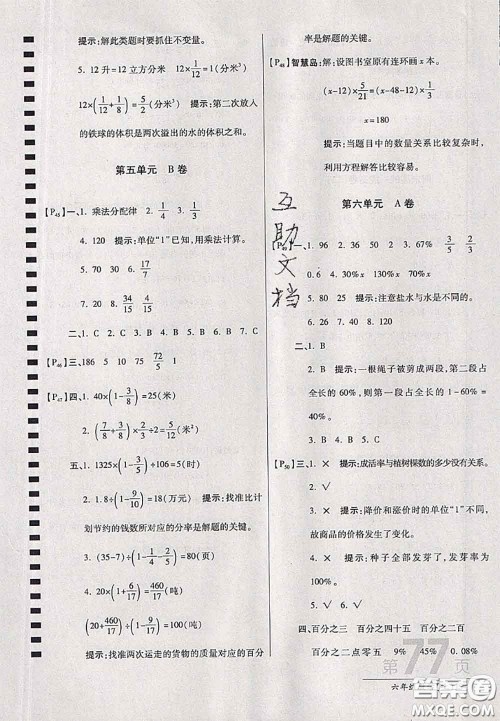 提示:解此类题时要抓住不变量。
5. 12升=12立方分米 12×1/12=1(分米³)
12×(1/12+1/8)=5/2(分米³) 提示:第二次放入
的铁球的体积是两次溢出的水的体积之和。
第五单元 B卷
【P45】一、1. 乘法分配律 2. 1/4 3. 1/8
4. 120 提示:单位“1”已知,用乘法计算。
5. 70 30 6. 17/7
7. 20 8. 34/15 4/15
二、1. C 2. C 3. A 4. A 5. C
【P46】三、186 5 10 75 72/5 1
【P47】四、1. 40×(1-3/8)=25(米)
2. (7/8-3/8)×2/3÷2=5/12(米)
五、1. 1325×(1-3/5)÷106=5(时)
2. 1.8÷(1-9/10)=18(万元) 提示:找准比计
划节约的钱数所对应的分率是解题的关键。
3. (35-7)÷(1-1/4-2/5)=80(页)
4. 20×(1+6/17)=460/17(吨)
(20+460/17)÷(1-9/17)=100(吨)
提示:找准两次运走的货物的质量对应的百分
率是解题的关键。
【P48】智慧岛:解:设图书室原有连环画x本。
(x-12)×5/21=(x-48-12)×3/10
x=180
提示:当题目中的数量关系比较复杂时,
利用方程解答比较容易。
第六单元 A卷
互助文档
一、1. 96 2. 30 3. 50 4. 35 3/5 2/3
0.6̇ 4. 130%x 170%x 30%x
5. 80 25 提示:注意盐水与水是不同的。
6. 26 7. 40 8. 120
二、1. B
2. B 提示:一根绳子被剪成两段,第二段
占全长的60%,则第一段占全长的1-60%=
40%。
3. B 4. B 5. C
【P50】三、1. × 提示:成活率与植树棵数的多少没有关系。
2. √
3. × 提示:降价和涨价时的单位“1”不同,
故商品的价格发生了变化。
4. × 提示:种子全部发芽了,发芽率为
100%。
5. √ 6. √
四、百分之三 百分之四十五 百分之二百
百分之二点零五 9% 45% 0.08%
第77页
六年级
答案圈
MXQE.COM